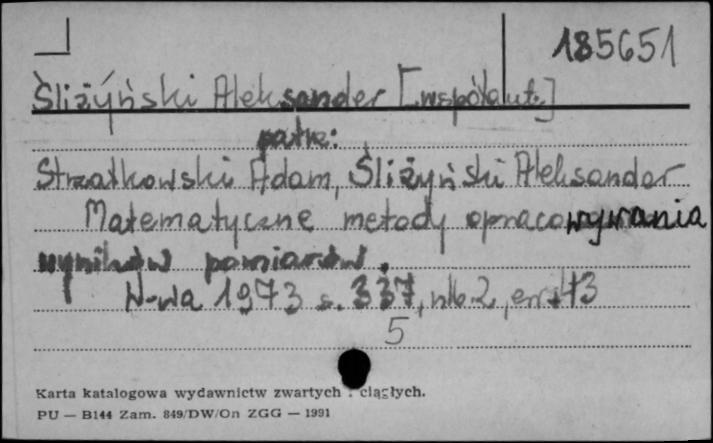 185651
Śliżyński Aleksander [współaut.]
patrz:
Strzałkowski Adam, Śliżyński Aleksander
Matematyczne metody opracowywania
wyników pomiarów.
W-wa 1973 s. 337, nlb 2, err. 43
5
Karta katalogowa wydawnictw zwartych i ciągłych.
PU — B144 Zam. 849/DW/On ZGG — 1991